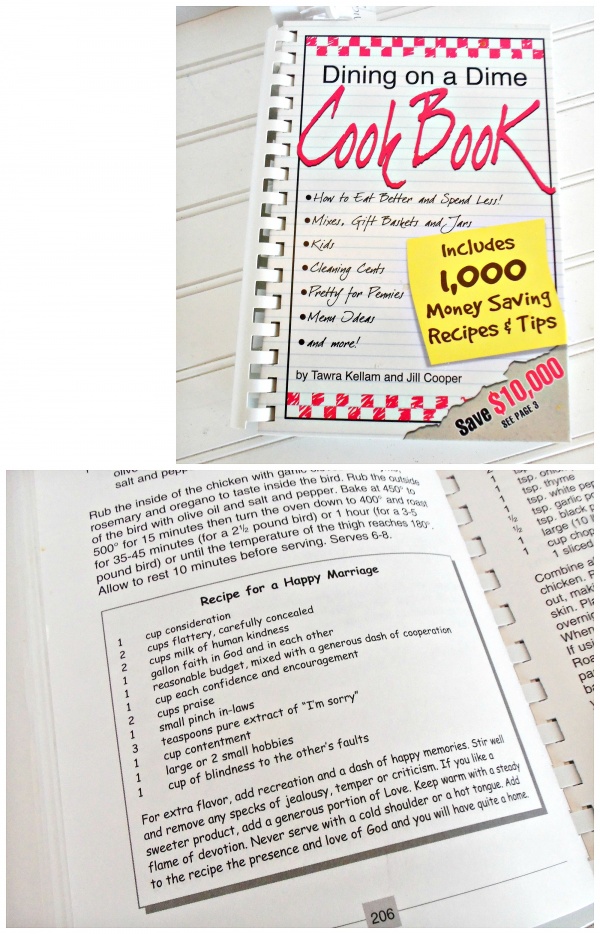 Dining on a Dime
Cook Book
• How to Eat Better and Spend Less!
• Mixes, Gift Baskets and Jars
• Kids
• Cleaning Cents
• Pretty for Pennies
• Menu Ideas
• and more!
Includes
1,000
Money Saving
Recipes & Tips
by Tawra Kellam and Jill Cooper
Save $10,000
SEE PAGE 3
salt and
Rub the inside of the chicken with
rosemary and oregano to taste inside the bird. Rub the outside
of the bird with olive oil and salt and pepper. Bake at 450° to
500° for 15 minutes then turn the oven down to 400° and roast
for 35-45 minutes (for a 2½ pound bird) or 1 hour (for a 3-5
pound bird) or until the temperature of the thigh reaches 180°.
Allow to rest 10 minutes before serving. Serves 6-8.
Recipe for a Happy Marriage
1 cup consideration
2 cups flattery, carefully concealed
2 cups milk of human kindness
1 gallon faith in God and in each other
1 reasonable budget, mixed with a generous dash of cooperation
1 cup each confidence and encouragement
2 cups praise
1 small pinch in-laws
3 teaspoons pure extract of "I'm sorry"
1 cup contentment
1 large or 2 small hobbies
1 cup of blindness to the other's faults
For extra flavor, add recreation and a dash of happy memories. Stir well
and remove any specks of jealousy, temper or criticism. If you like a
sweeter product, add a generous portion of Love. Keep warm with a steady
flame of devotion. Never serve with a cold shoulder or a hot tongue. Add
to the recipe the presence and love of God and you will have quite a home.
206
tsp. thyme
tsp. white
tsp. garlic
tsp. black
large (10
cup
1 sliced
Combine
chicken.
out,
skin.
When
If